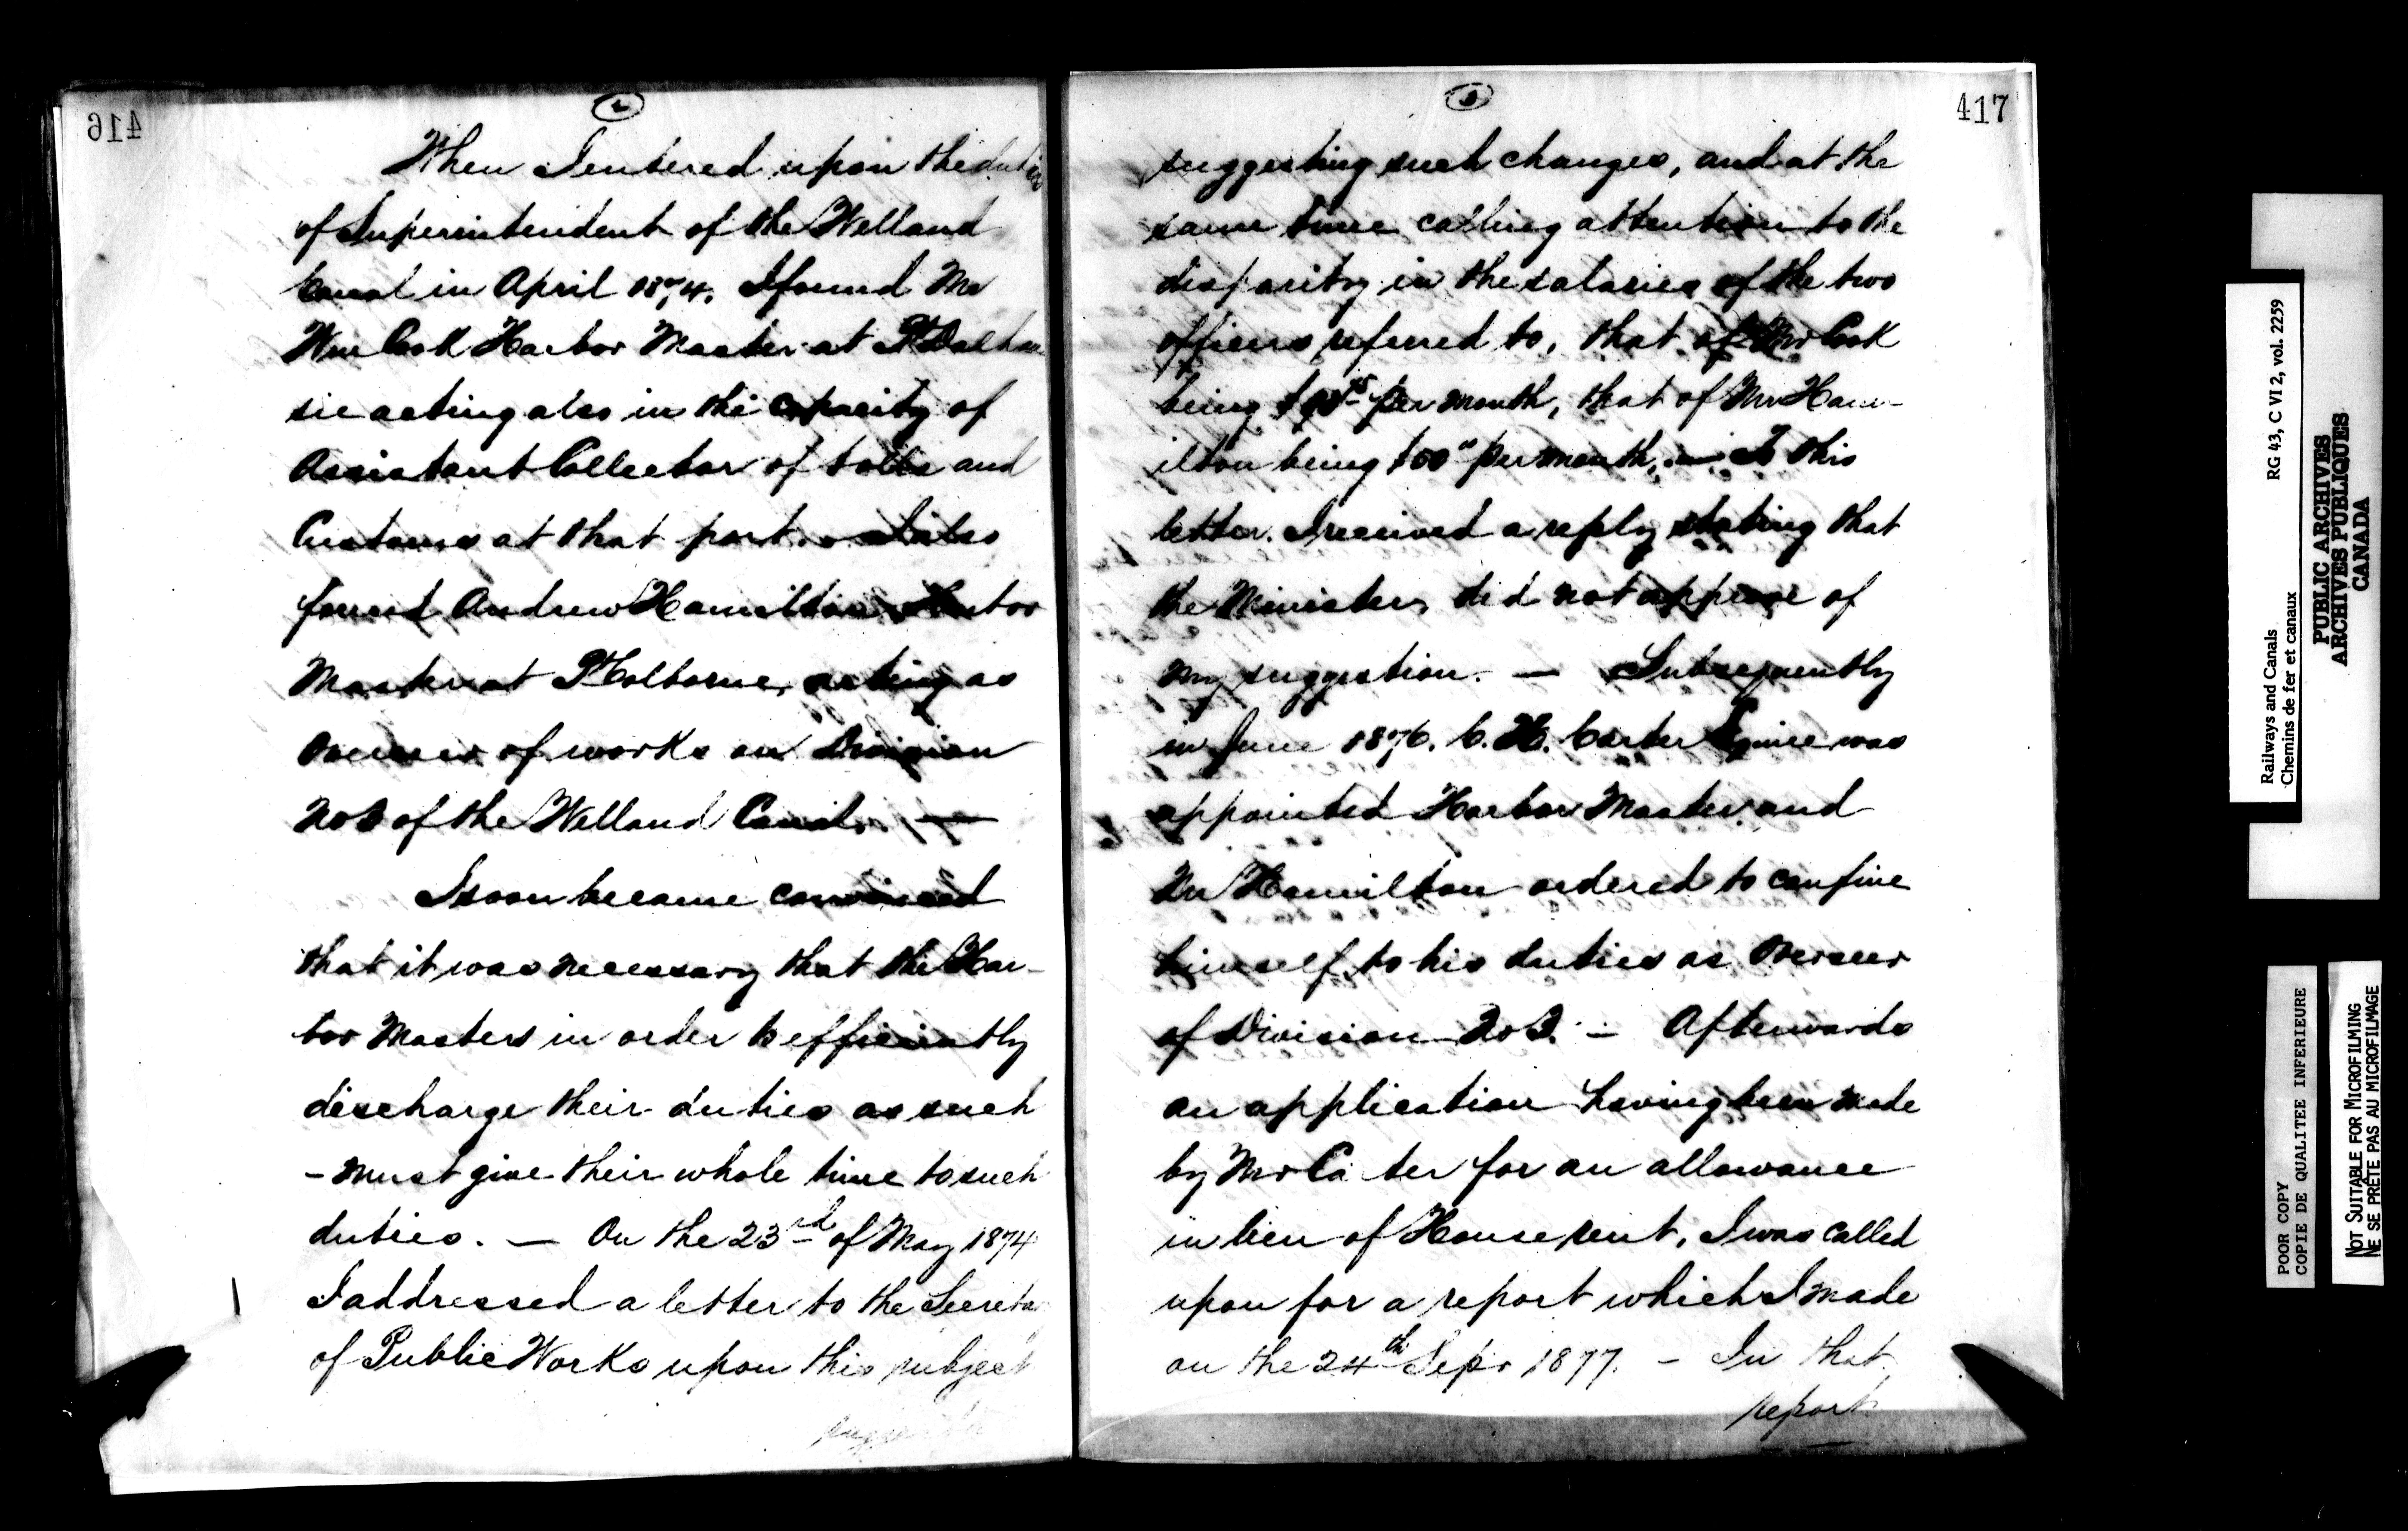 416
2
When I entered upon the duties
of Superintendent of the Welland
Canal in April 1874. I found Mr
Wm Cook Harbor Master at Pt Dalhou
sie acting also in the capacity of
Assistant Collector of tolls and
Customs at that port. I also
found Andrew Hamilton Harbor
Master at Pt Colborne, acting as
Overseer of works on Division
No 2 of the Welland Canal. —
I soon became convinced
that it was necessary that the Har-
bor Masters in order to efficiently
discharge their duties as such
- must give their whole time to such
duties. — On the 23rd of May 1874
I addressed a letter to the Secreta
of Public Works upon this subject
suggesting
417
3
suggesting such changes, and at the
same time calling attention to the
disparity in the salaries of the two
officers referred to, that of Mr Cook
being per month, that of Mr Ham-
ilton being per month. — To this
letter I received a reply stating that
the Minister did not approve of
my suggestion. — Subsequently
in June 1876. C. H. Carter Esquire was
appointed Harbor Master and
Mr Hamilton ordered to confine
himself to his duties as Overseer
of Division No 2. — Afterwards
an application having been made
by Mr Ca ter for an allowance
in lieu of House rent, I was called
upon for a report which I made
on the 24th Sepr 1877. — In that
report
Railways and Canals
RG 43, C VI 2, vol. 2259
Chemins de fer et canaux
PUBLIC ARCHIVES
ARCHIVES PUBLIQUES
CANADA
POOR COPY
COPIE DE QUALITEE INFERIEURE
NOT SUITABLE FOR MICROFILMING
NE SE PRÊTE PAS AU MICROFILMAGE